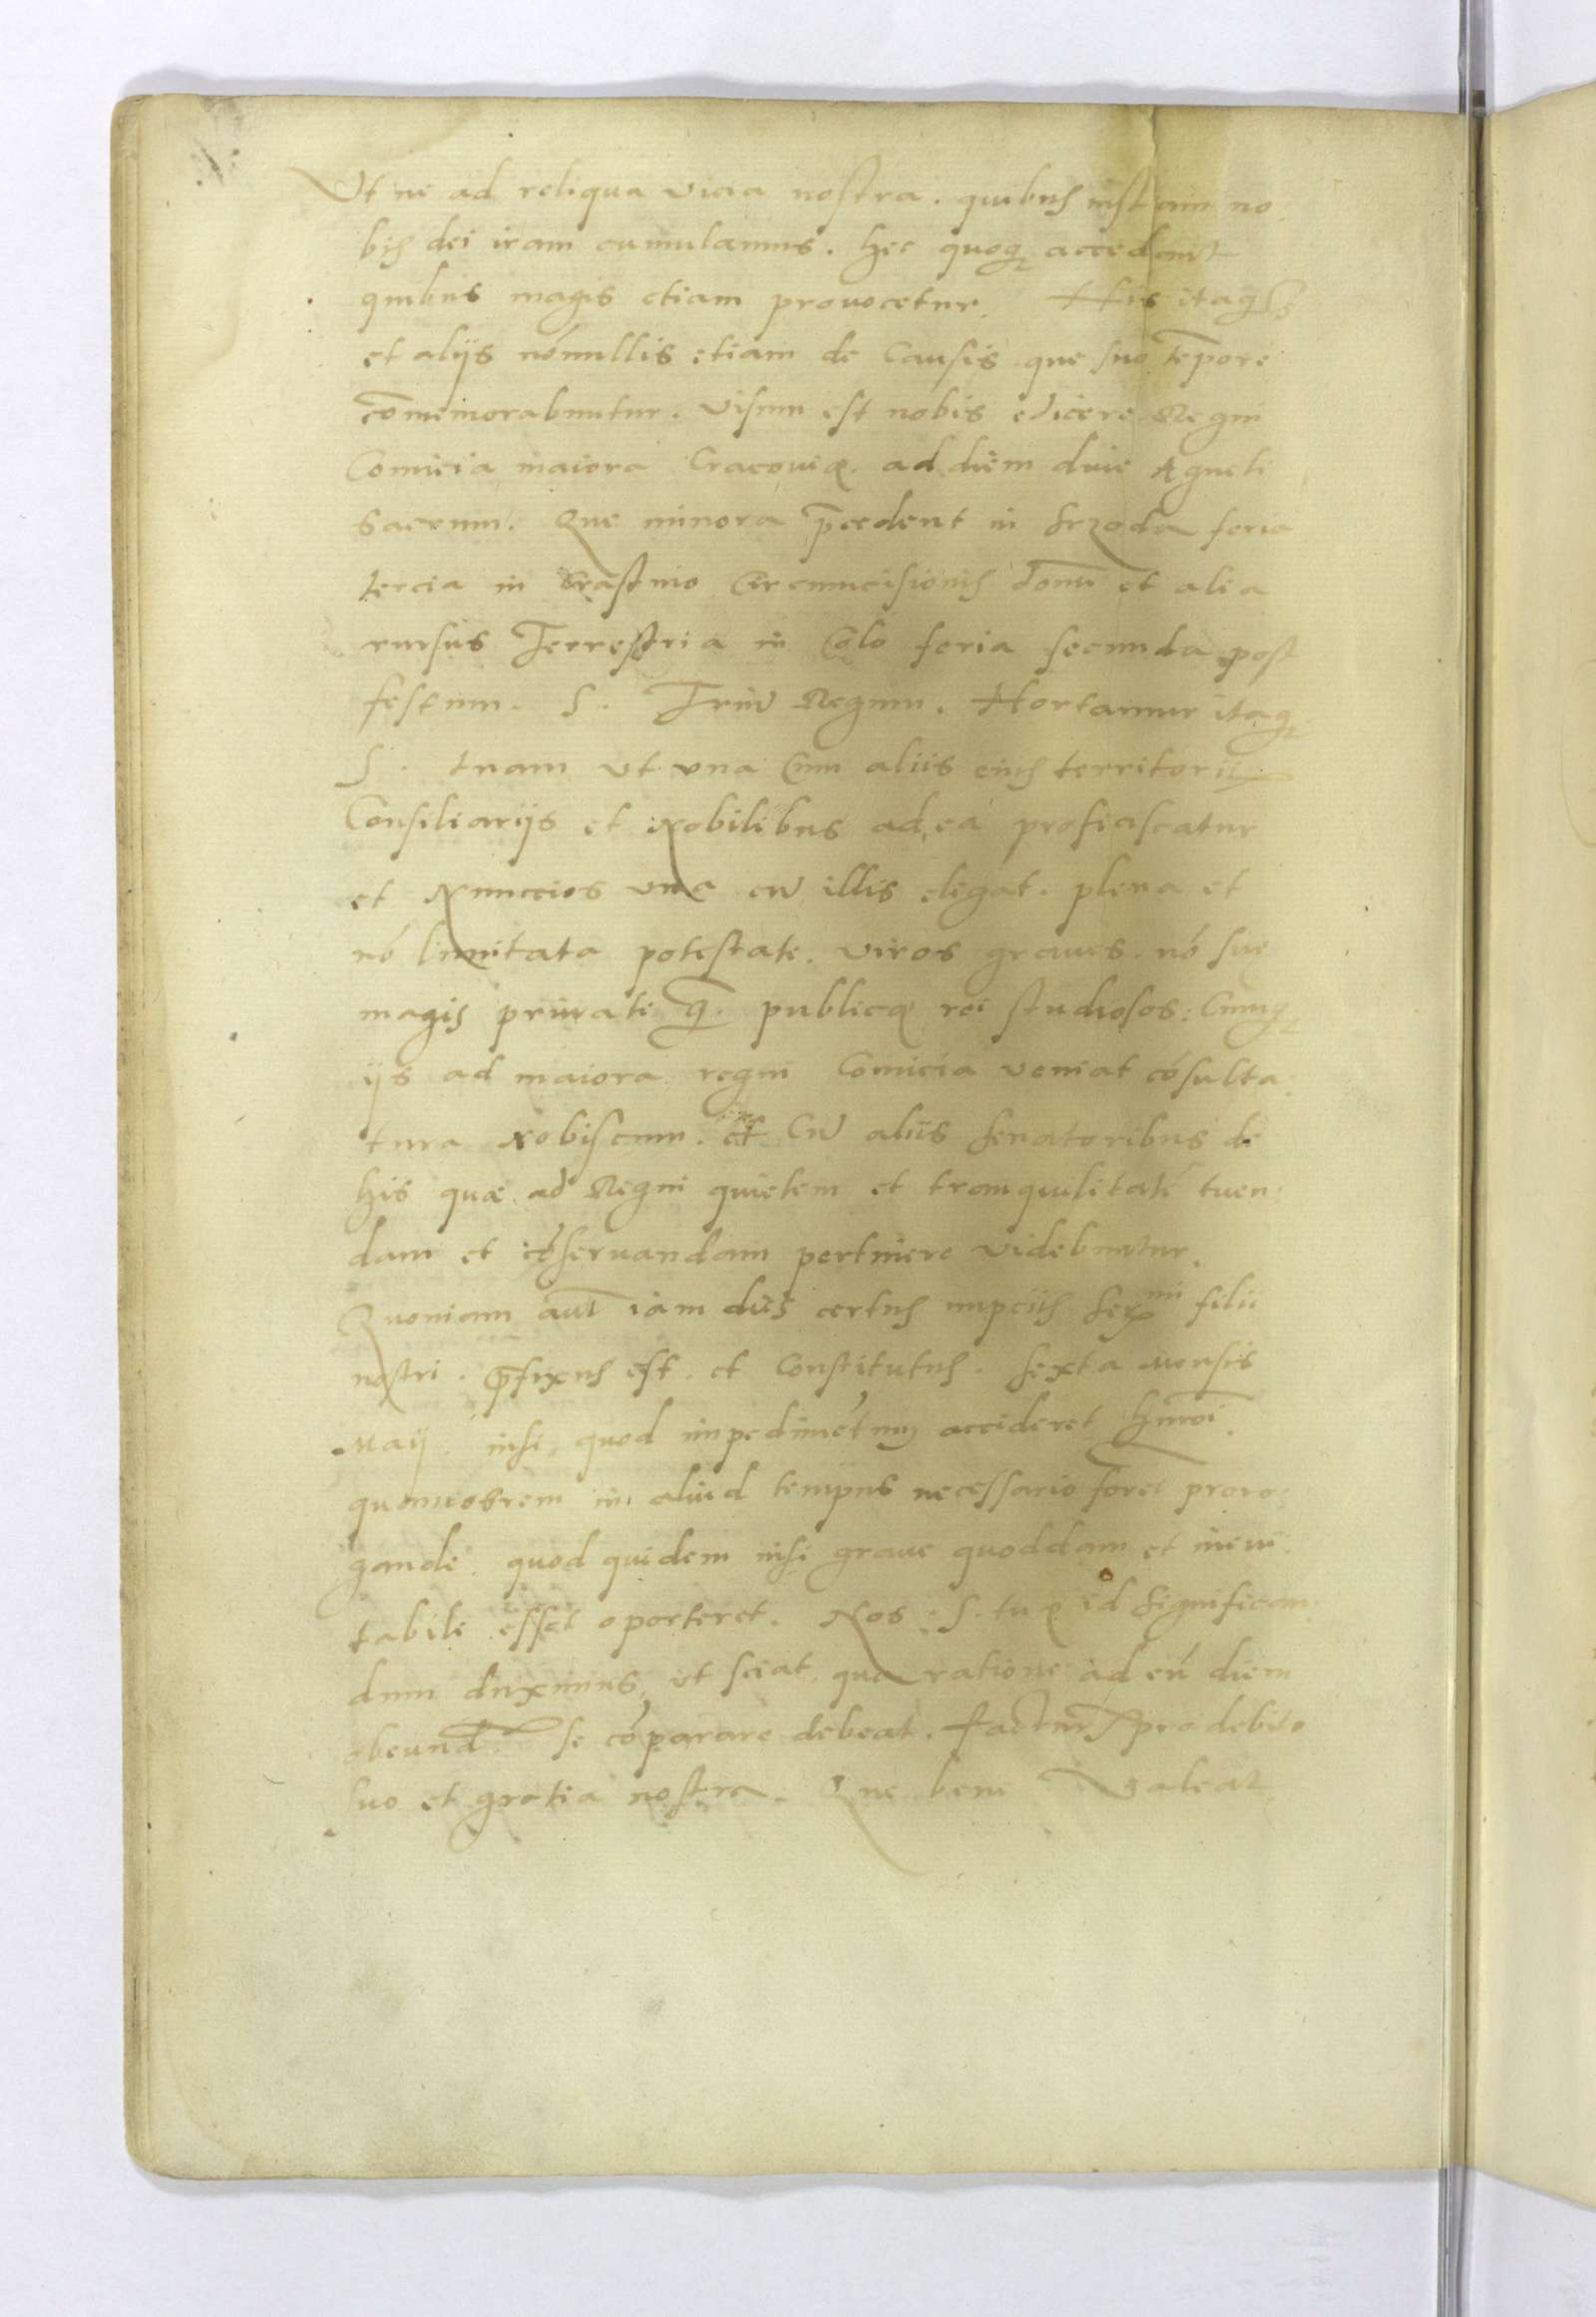 Ut ne ad reliqua vicia nostra. quibus iustam no:
bis dei iram cumulamus. hec quoq; accedant
quibus magis etiam provocetur. His itaq;
et alijs nónullis etiam de causis que suo tēpore
cōmemorabuntur. Visum est nobis edicere Regni
Comicia maiora Cracoviæ. ad diem dive Agneti
Sacrum. Que minora p̄cedent in Srzoda feria
tercia in Crastino Circumcisionis domī et alia
rursus Terrestria in Colo feria secunda post
festum. S. Triū Regum. Hortamur itaq;
S. tuam ut una Cum aliis eius territorii
Consiliarijs et Nobilibus ad ea proficiscatur
et Nunccios una cū illis eligat. plena et
nó limitata potestate. viros graves. nó sue
magis private q̄. publicæ rei studiosos: Cumq;
ijs ad maiora regni Comicia veniat cósulta:
tura nobiscum. et Cū aliis senatoribus de
his quæ ad Regni quietem et tranquilitatē tuen:
dam et cóservandam pertinere videbuntur.
Quoniam aut̄ iam dies certus nupciis Ser^mi filii
nostri. p̄fixus est. et Constitutus. sexta Mensis
Maij. nisi, quod impedimétum accideret hmōi.
quamobrem in aliud tempus necessario foret proro:
gande. quod quidem nisi grave quoddam et inevi:
tabile esset oporteret. Nos. S. tuæ id significan:
dum duximus, ut sciat qua ratione ad eū diem
obeund. se cóparare debeat. factur pro debito
suo et gratia nostra. Que bene Valeat